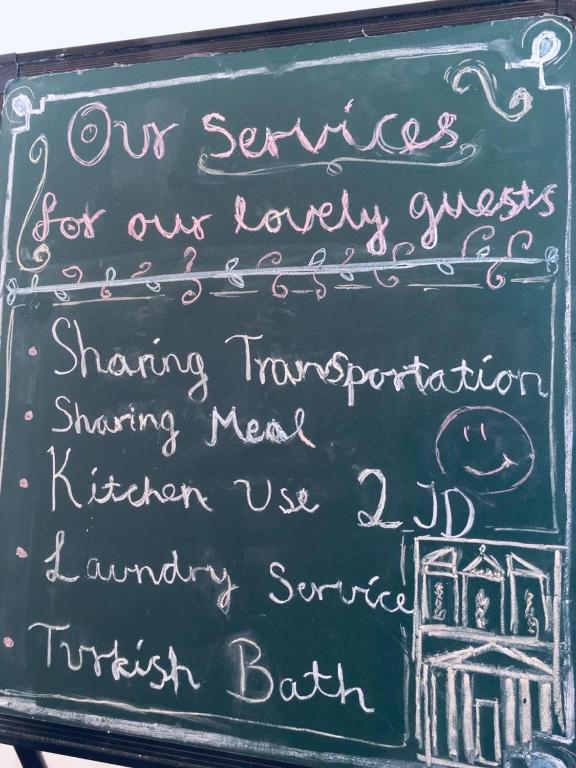 Our Services
for our lovely guests
• Sharing Transportation
• Sharing Meal
• Kitchen Use 2 JD
• Laundry Service
• Turkish Bath